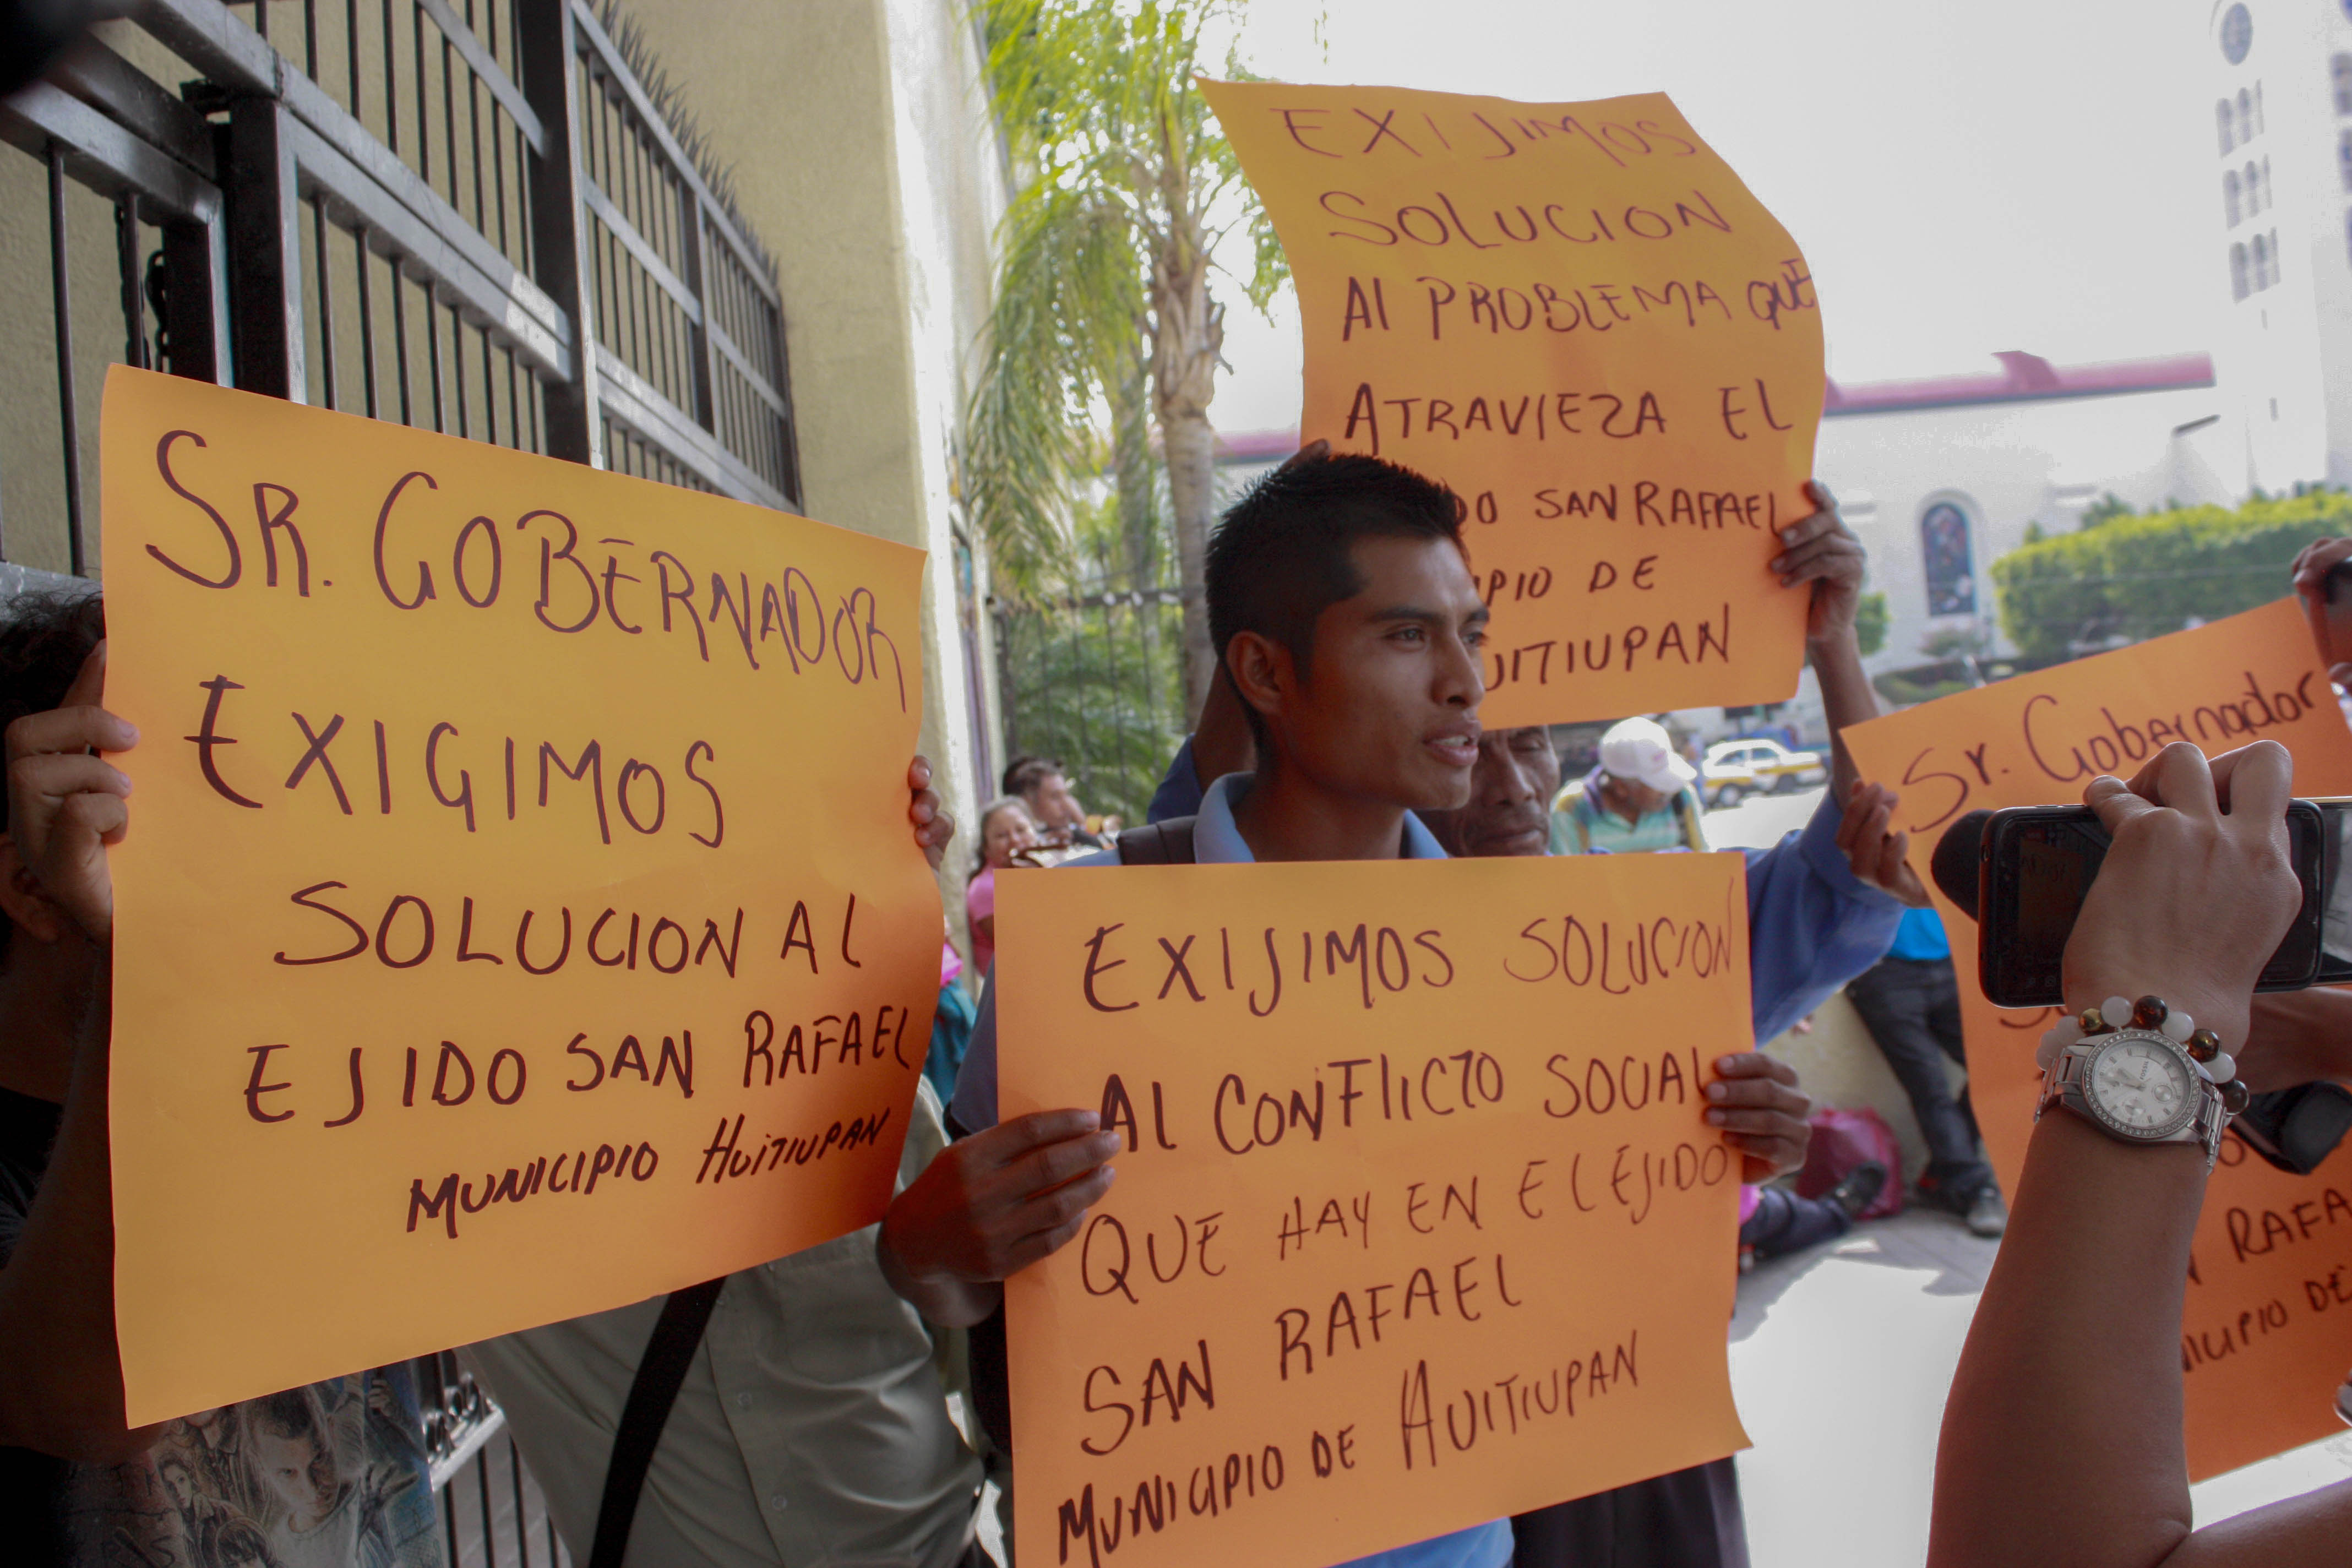 SR. GOBERNADOR
EXIGIMOS
SOLUCION AL
EJIDO SAN RAFAEL
MUNICIPIO HUITIUPAN
EXIJIMOS
SOLUCION
Al PROBLEMA QUE
ATRAVIEZA EL
DO SAN RAFAEL
IPIO DE
UITIUPAN
EXIJIMOS SOLUCION
AL CONFLICTO SOCIAL
QUE HAY EN EL EJIDO
SAN RAFAEL
MUNICIPIO DE HUITIUPAN
Sr. Gobernador
RAFA
NICIPIO DE